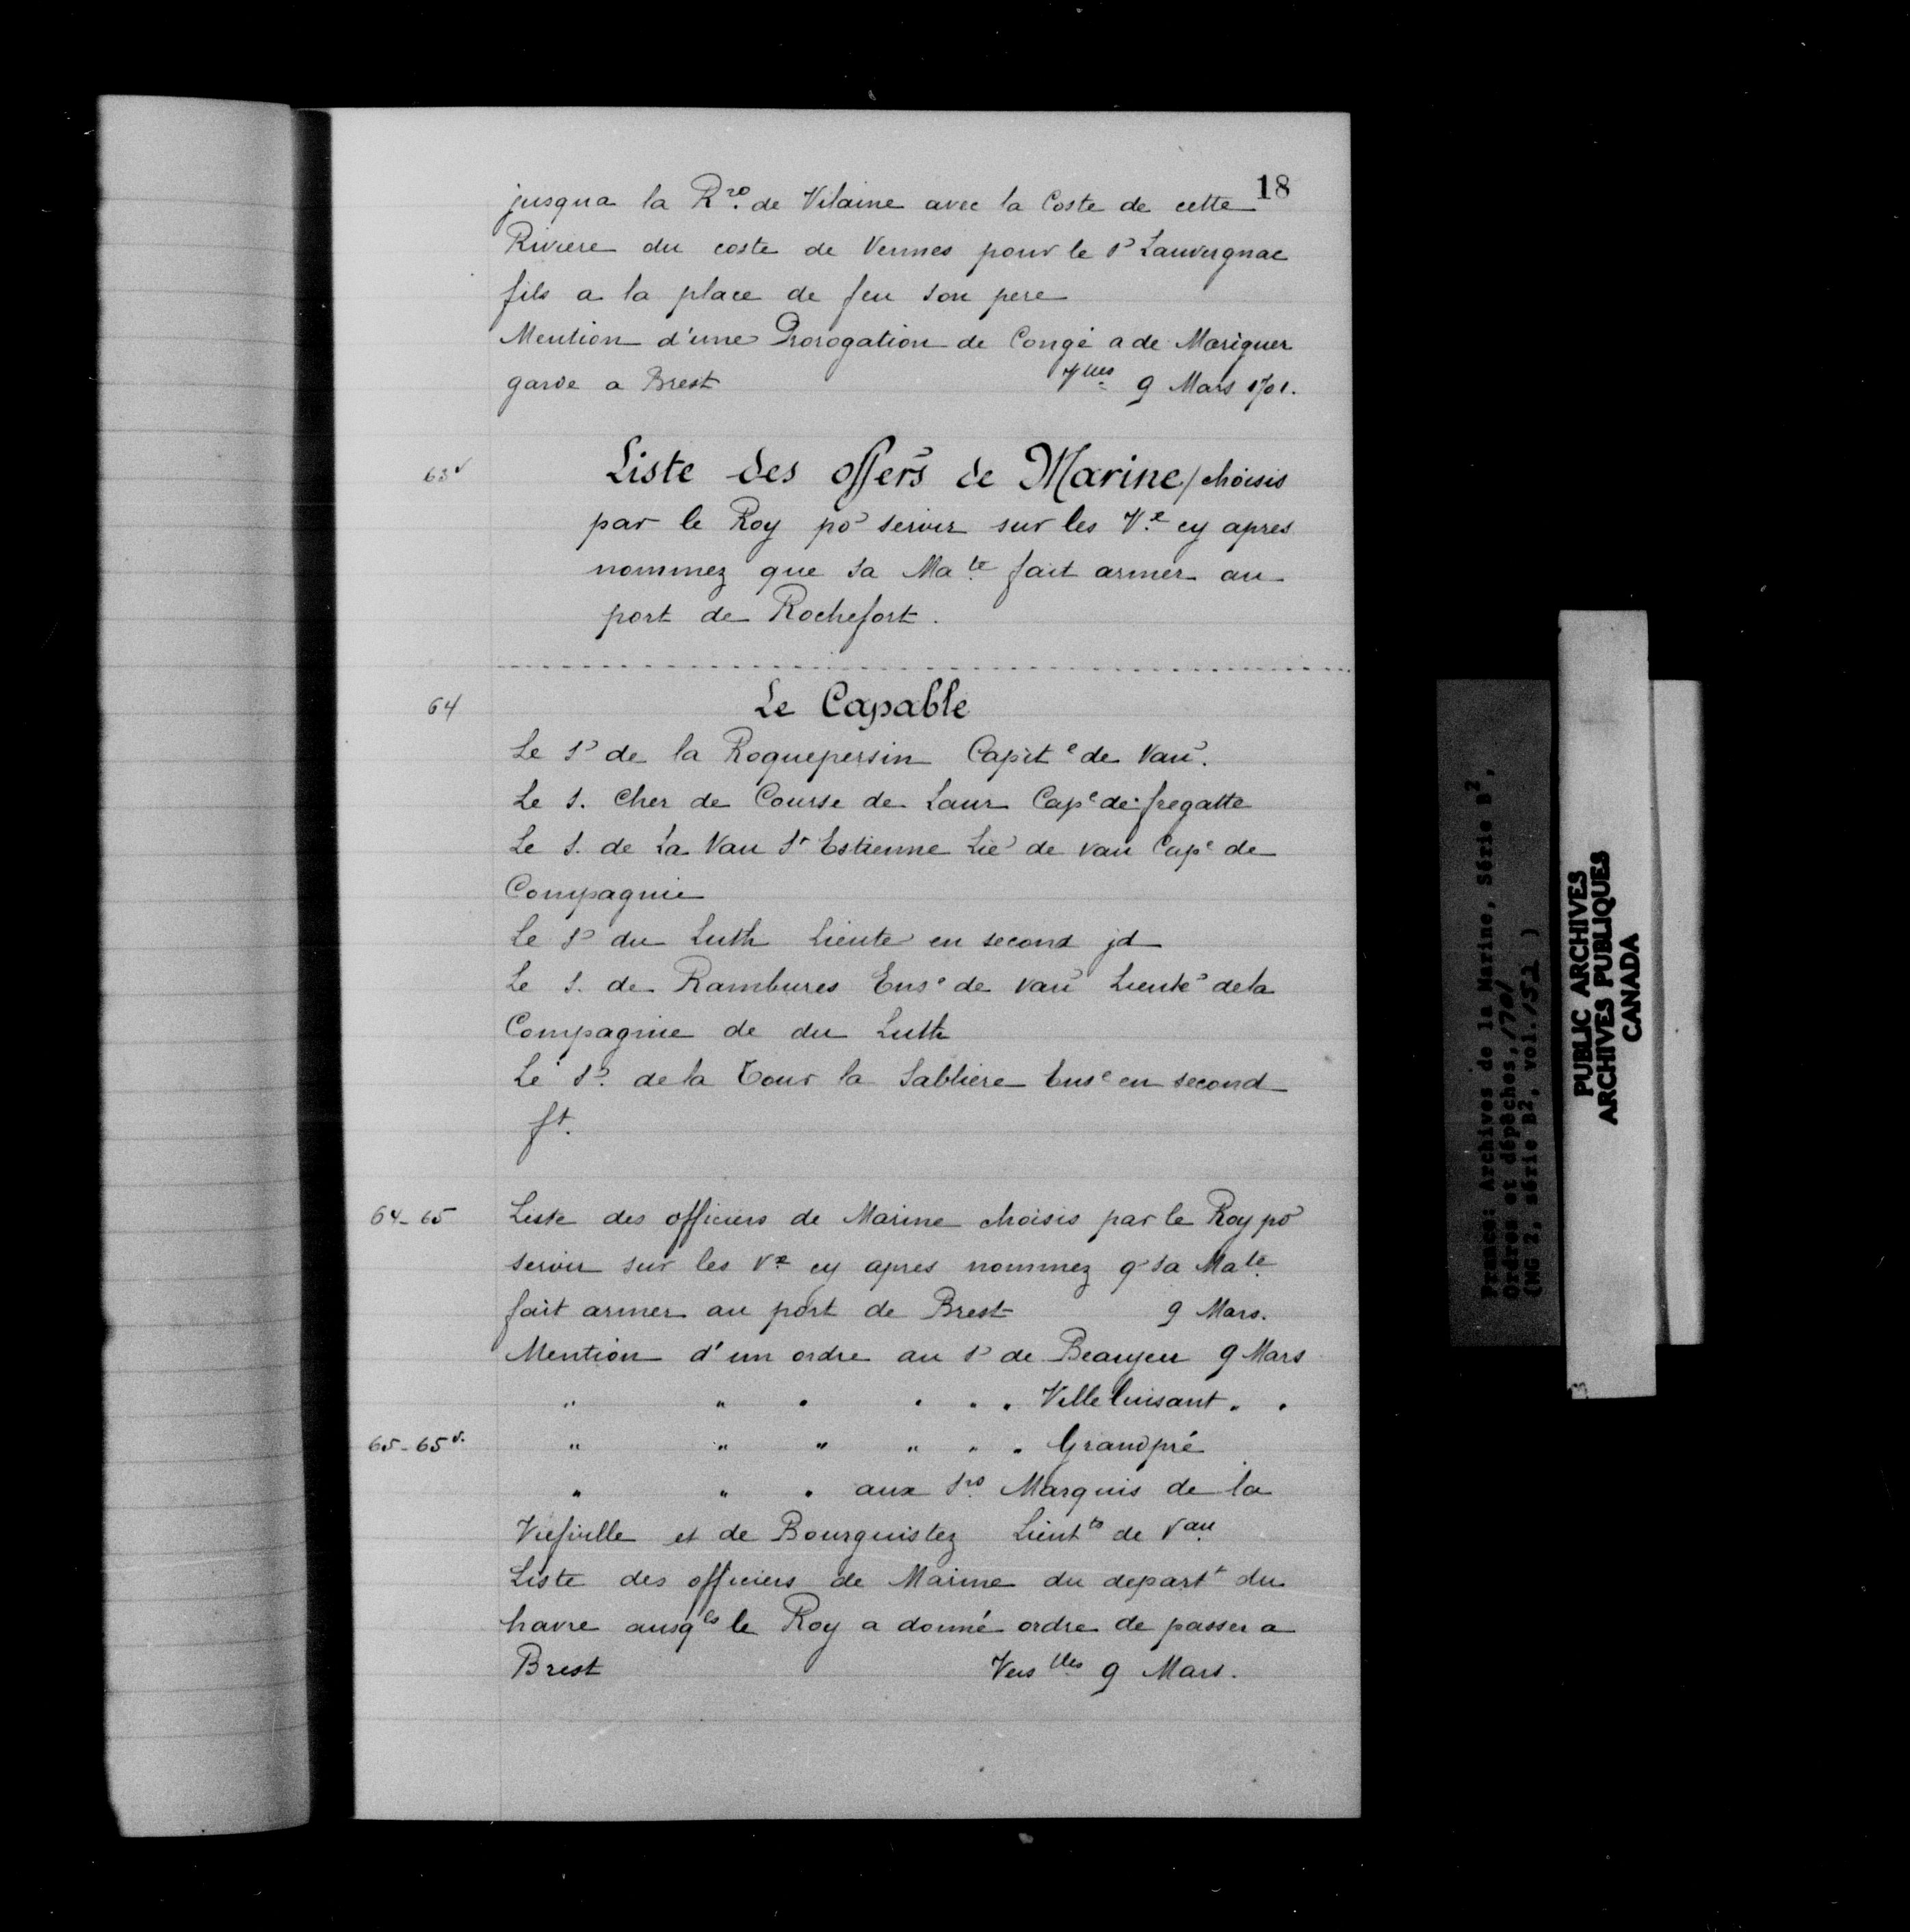 18
jusqua la R.re de Vilaine avec la Coste de cette
Riviere du coste de Vennes pour le Sr Lauvergnac
fils a la place de feu son pere
Mention d'une Prorogation de Congé a de Mariquer
garde a Brest Vlles 9 Mars 1701.
63v Liste des offers de Marine / choisis
par le Roy po servir sur les V.x cy apres
nommez que sa Ma.te fait armer au
port de Rochefort.
64 Le Capable
Le Sr de la Roquepersin Capite de Vau.
Le S. Cher de Course de Laur Cape de fregatte
Le S. de La Vau St Estienne Lie de vau Cape de
Compagnie
Le Sr du Luth Lieute en second jd
Le S. de Rambures Ense de vau Lieute de la
Compagnie de du Luth
Le Sr. de la Tour la Sabliere Ense en second
ft.
64-65 Liste des officiers de Marine choisis par le Roy po
servir sur les Vx cy apres nommez q sa Mate
fait armer au port de Brest 9 Mars.
Mention d'un ordre au Sr de Beaujeu 9 Mars
" " " " " " Ville luisant " "
65-65v. " " " " " " Grandpré
" " " aux Srs Marquis de la
Viefville et de Bourguistez Lieutts de Vau
Liste des officiers de Marine du depart.t du
havre ausqls le Roy a donné ordre de passer a
Brest Verslles 9 Mars.
France: Archives de la Marine, Série B2,
Ordres et dépêches, 1701
(MG 2, série B2, vol. 152 )
PUBLIC ARCHIVES
ARCHIVES PUBLIQUES
CANADA